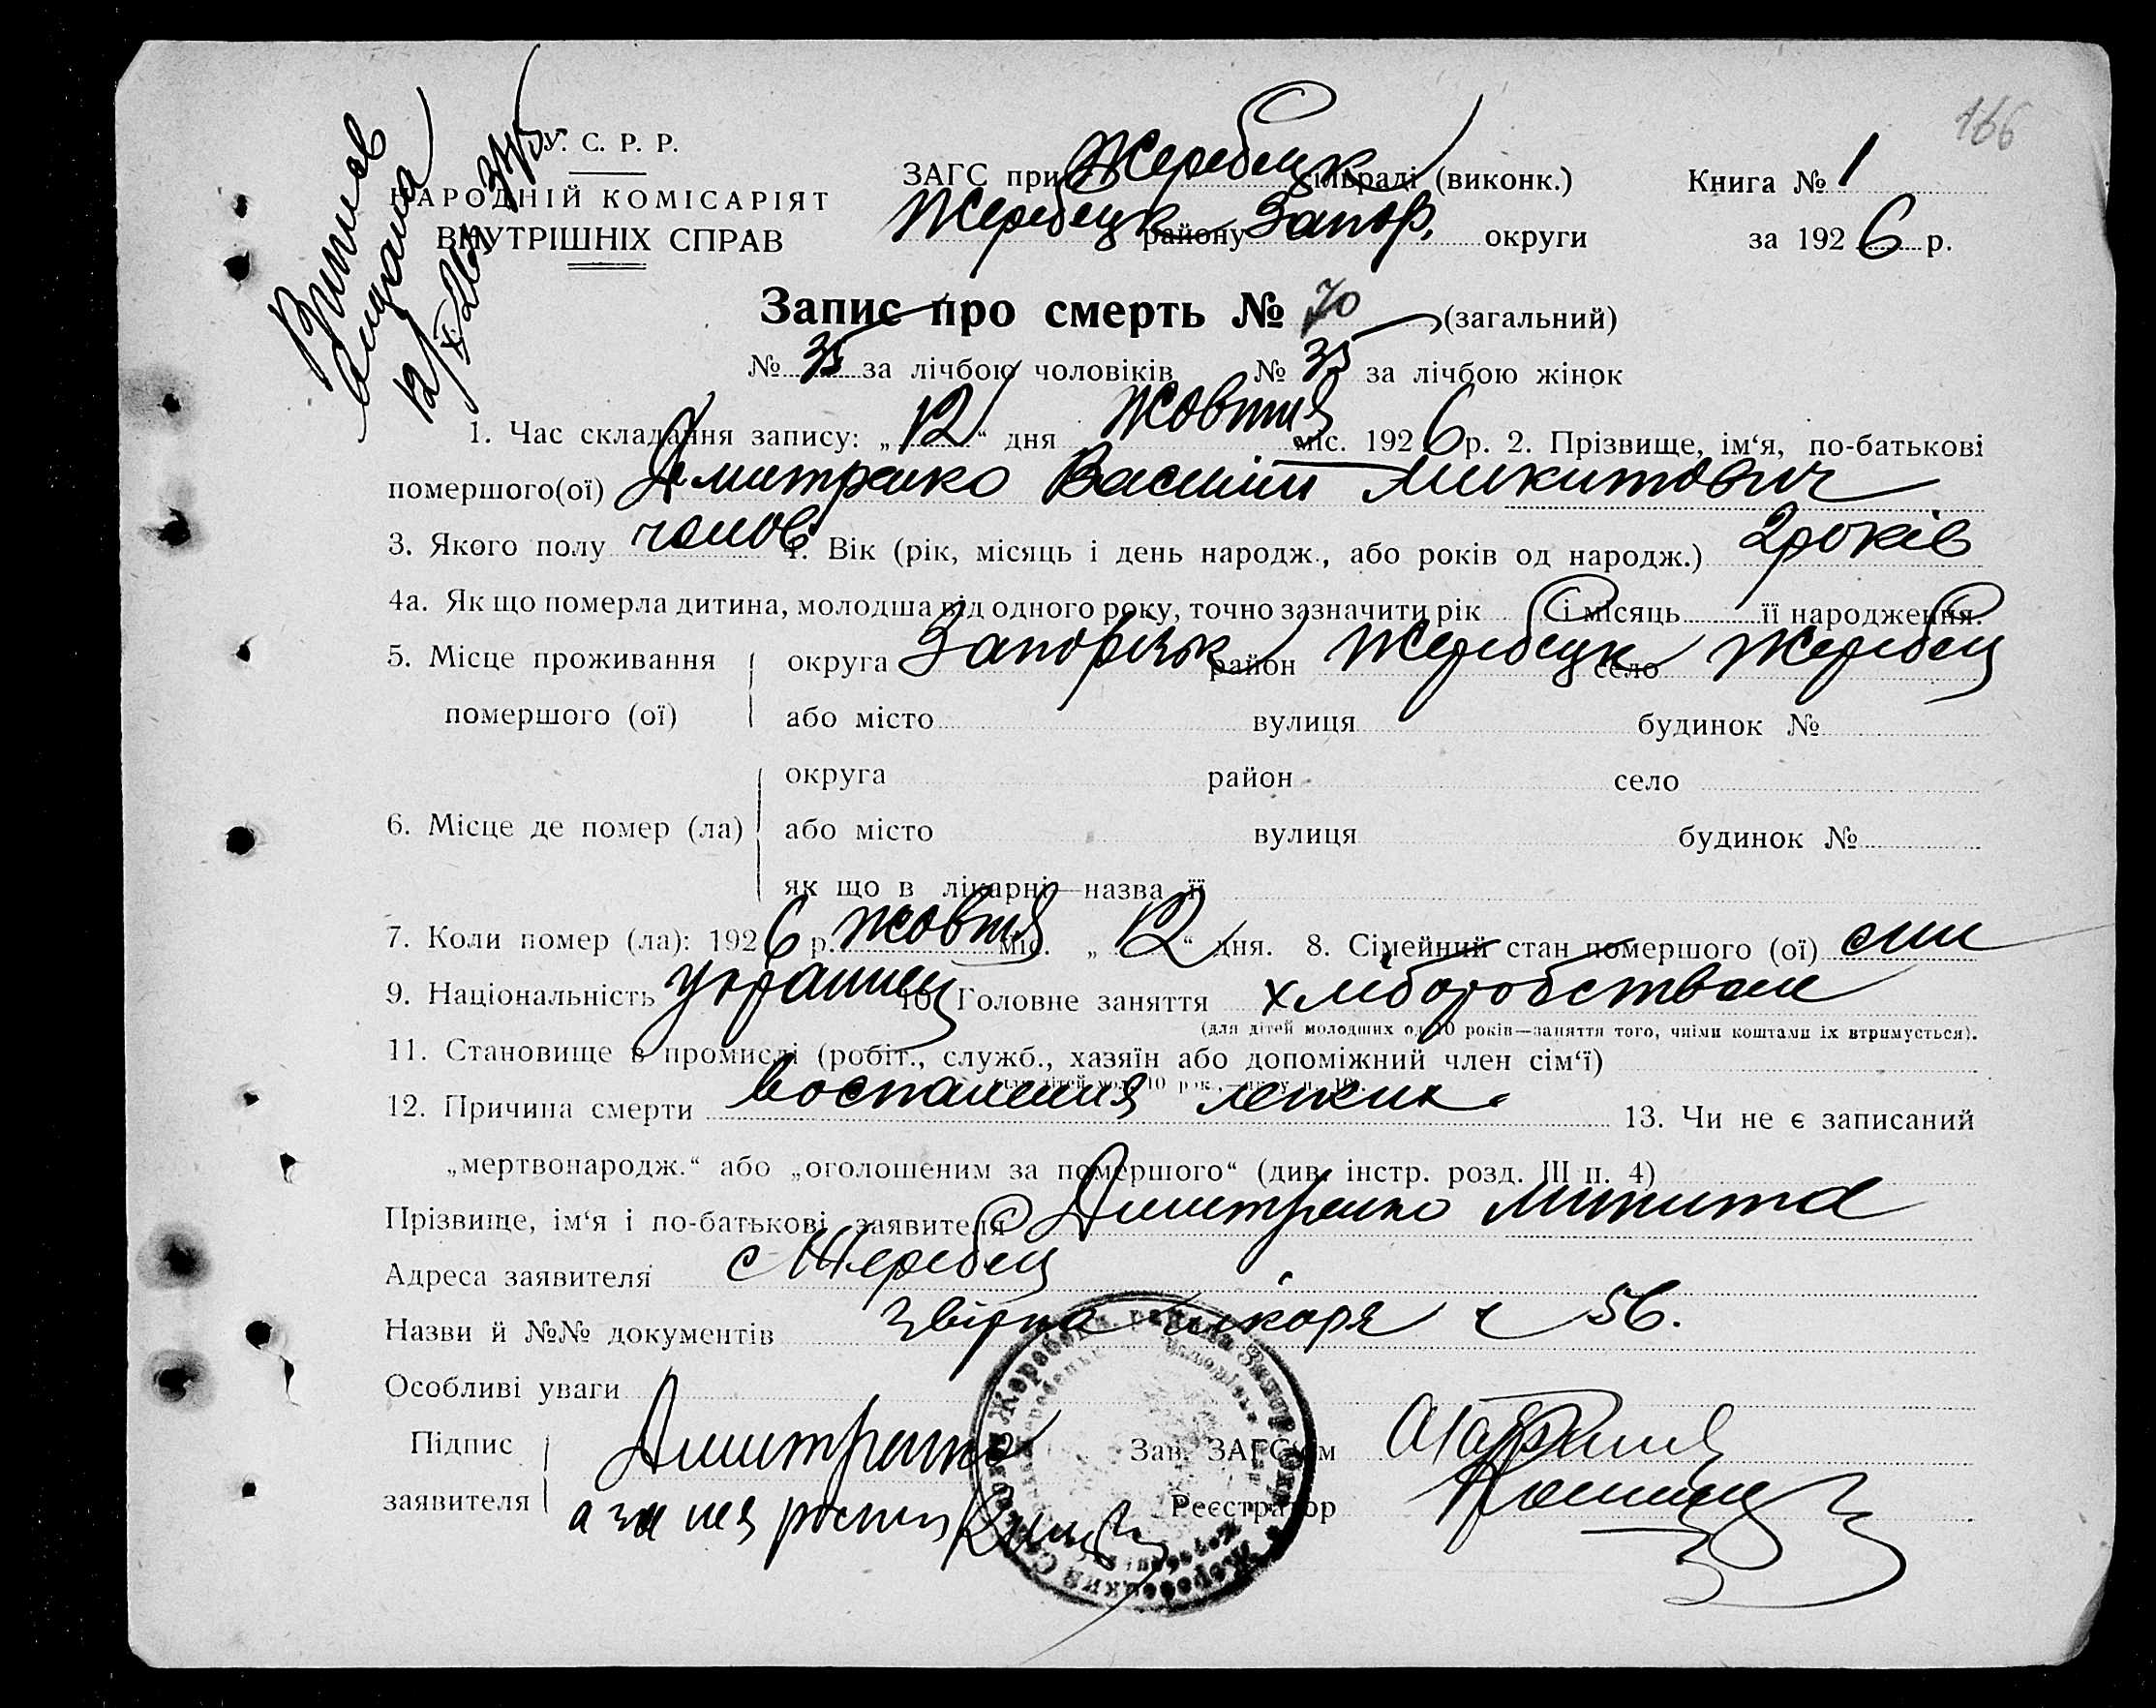 166
У. С. Р. Р.
НАРОДНІЙ КОМІСАРІЯТ
ВНУТРІШНІХ СПРАВ
ЗАГС при Жеребецк сільраді (виконк.)
Жеребецк району Запор. округи
Книга № 1
за 1926 р.
Запис про смерть № 70 (загальний)
№ 35 за лічбою чоловіків № 35 за лічбою жінок
1. Час складання запису: „12“ дня жовтня міс. 1926 р. 2. Прізвище, ім‘я, по-батькові
помершого(ої) Дмитренко Василій Микитович
3. Якого полу чолов 4. Вік (рік, місяць і день народж., або років од народж.) 2 років
4а. Як що померла дитина, молодша від одного року, точно зазначити рік і місяць її народження.
5. Місце проживання помершого (ої) округа Запоріжк район Жеребецк село Жеребец
або місто вулиця будинок №
округа район село
6. Місце де помер (ла) або місто вулиця будинок №
як що в лікарні—назва її
7. Коли помер (ла): 1926 р. жовтня міс. „12“ дня. 8. Сімейний стан помершого (ої) син
9. Національність украинец 10. Головне заняття хліборобством
(для дітей молодших од 10 років—заняття того, чиїми коштами їх втримується).
11. Становище в промислі (робіт., служб., хазяїн або допоміжний член сім‘ї)
12. Причина смерти воспаления легких 13. Чи не є записаний
„мертвонародж.“ або „оголошеним за помершого“ (див. інстр. розд. III п. 4)
Прізвище, ім‘я і по-батькові заявителя Дмитренко Микита
Адреса заявителя с Жеребец
Назви й №№ документів лікаря ч 56.
Особливі уваги
Підпис заявителя Дмитренко
а за нея
Зав. ЗАГС‘ом
Реєстратор